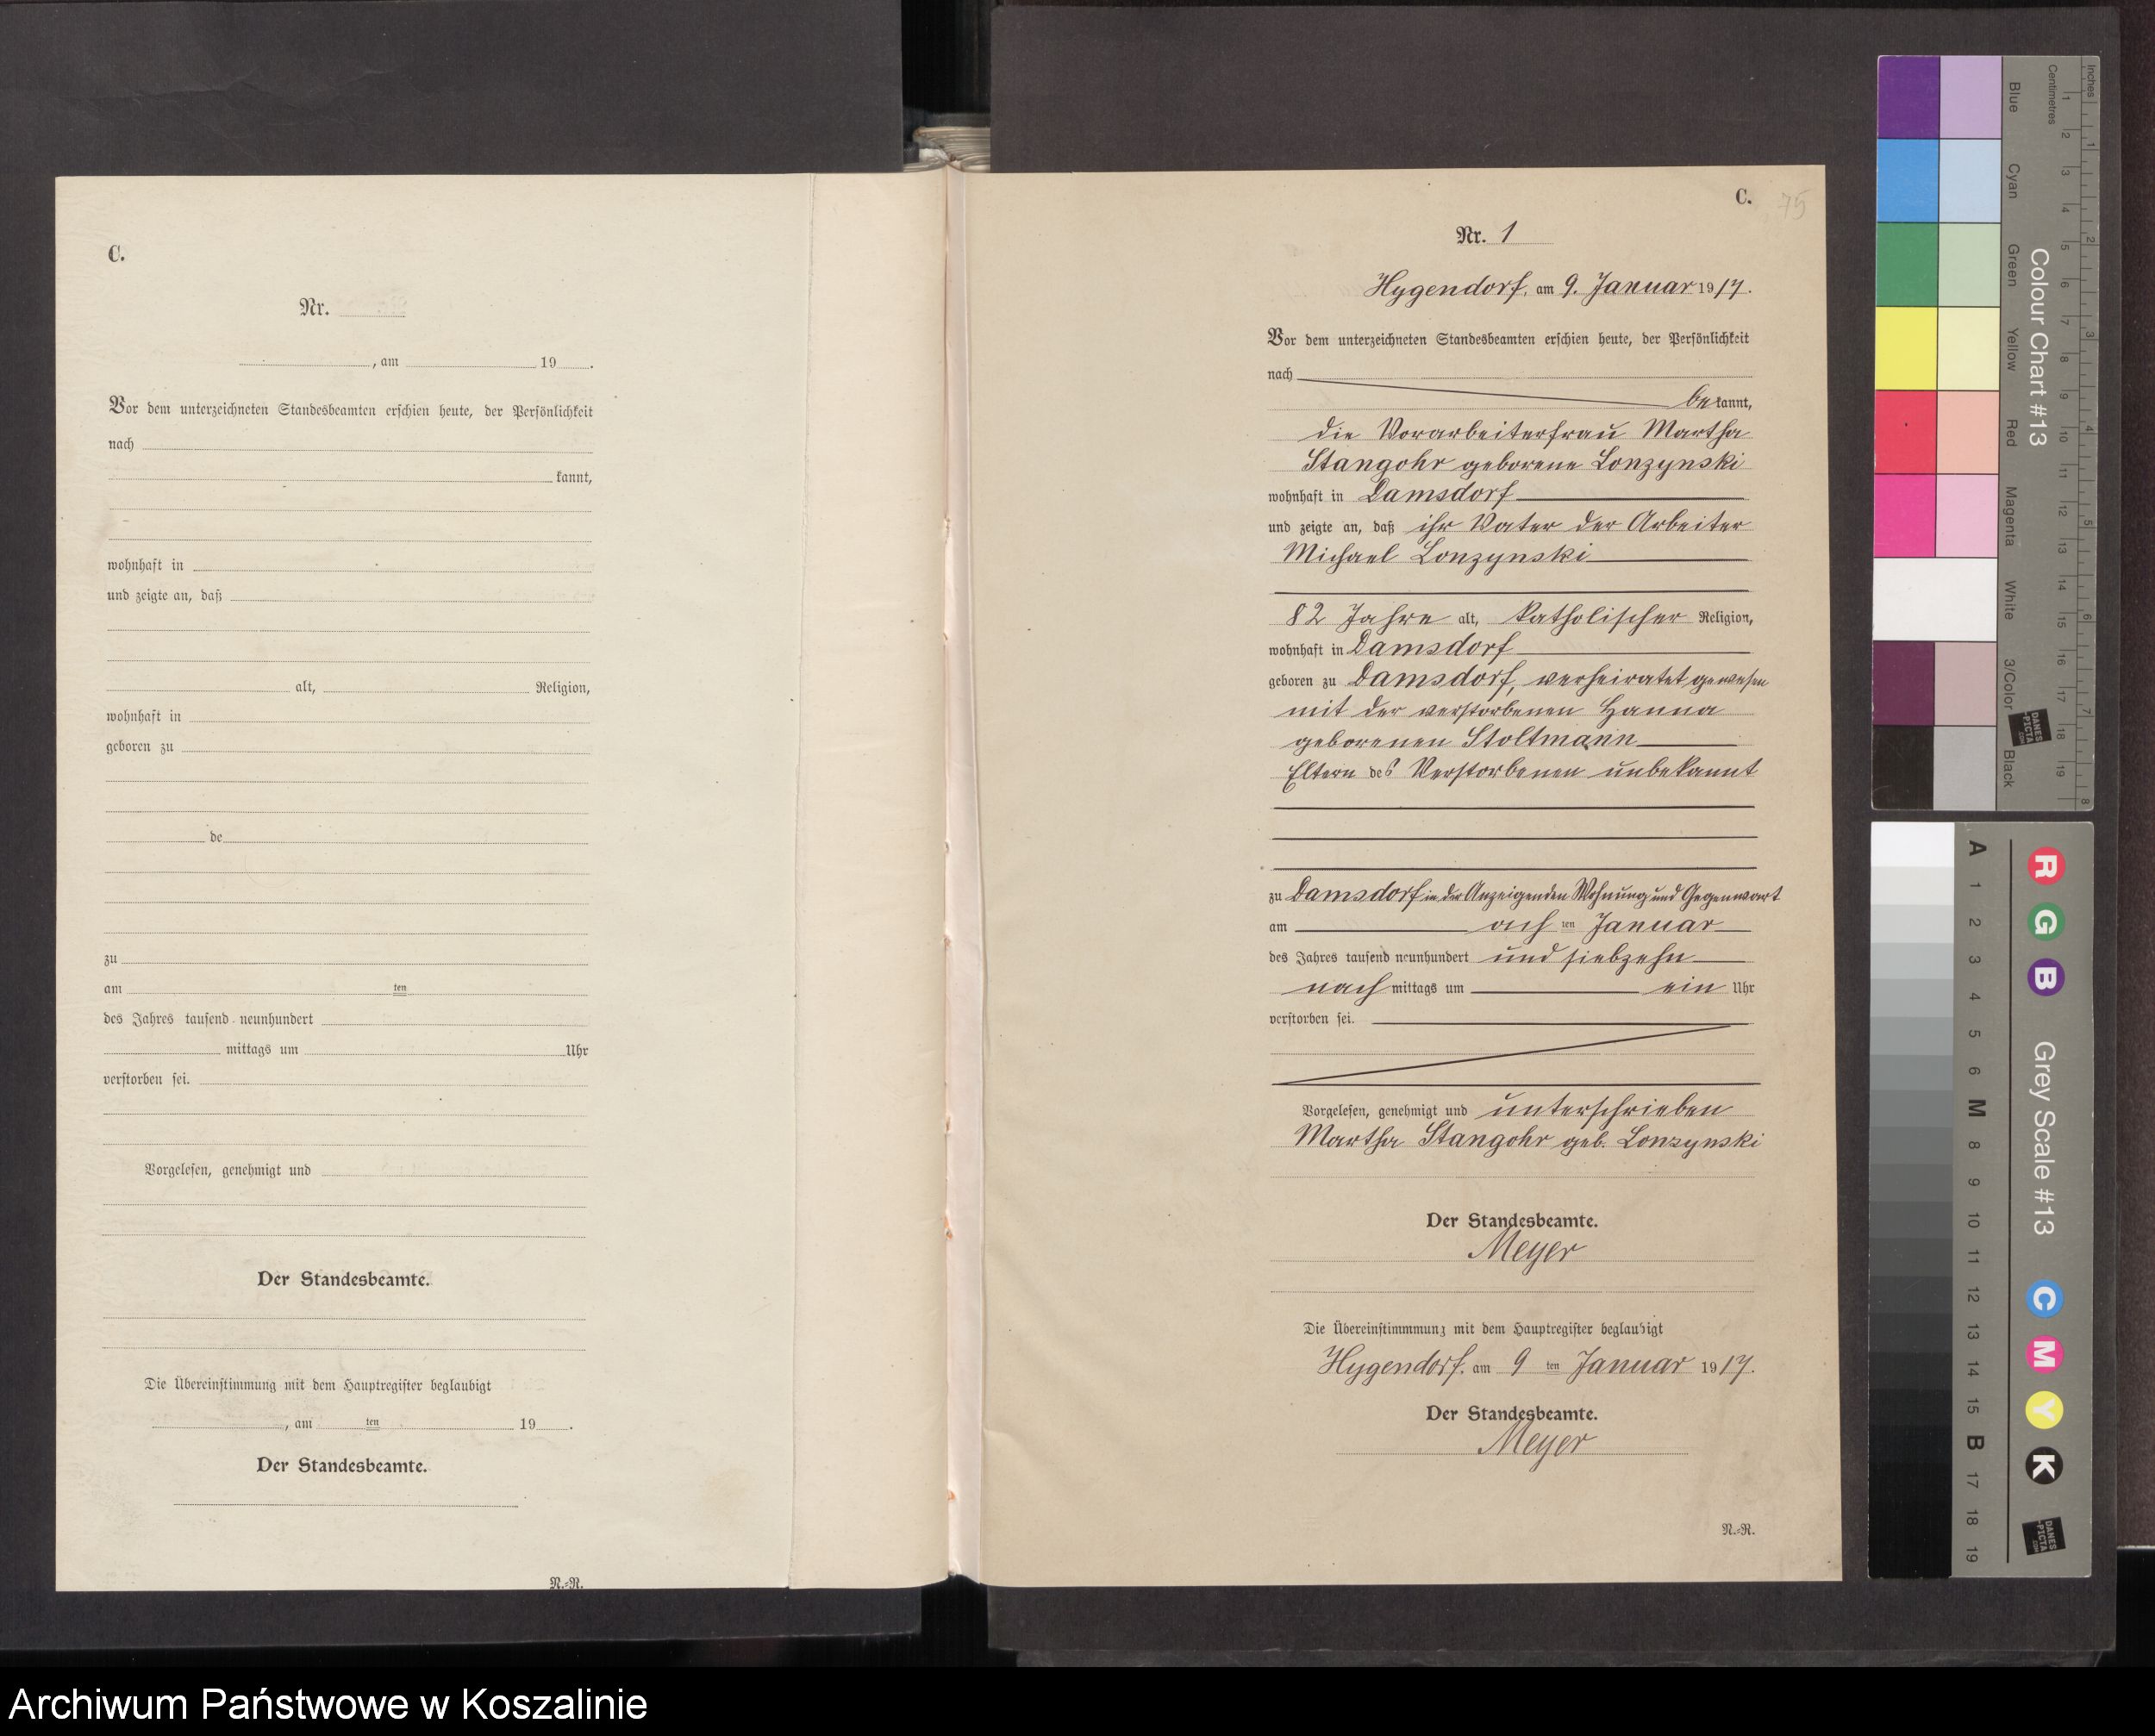 C.
Nr.
, am 19 .
Vor dem unterzeichneten Standesbeamten erschien heute, der Persönlichkeit
nach
kannt,
wohnhaft in
und zeigte an, daß
alt, Religion,
wohnhaft in
geboren zu
de
zu
am ten
des Jahres tausend neunhundert
mittags um Uhr
verstorben sei.
Vorgelesen, genehmigt und
Der Standesbeamte.
Die Übereinstimmung mit dem Hauptregister beglaubigt
, am ten 19 .
Der Standesbeamte.
N.-R.
C. 75
Nr. 1
Hygendorf, am 9. Januar 1917.
Vor dem unterzeichneten Standesbeamten erschien heute, der Persönlichkeit
nach
be kannt,
die Vorarbeiterfrau Martha
Stangohr geborene Lonzynski
wohnhaft in Damsdorf
und zeigte an, daß ihr Vater der Arbeiter
Michael Lonzynski
82 Jahre alt, katholischer Religion,
wohnhaft in Damsdorf
geboren zu Damsdorf, verheiratet gewesen
mit der verstorbenen Hanna
geborenen Stoltmann
Eltern des Verstorbenen unbekannt
zu Damsdorf in der Anzeigenden Wohnung und Gegenwart
am ach ten Januar
des Jahres tausend neunhundert und siebzehn
nach mittags um ein Uhr
verstorben sei.
Vorgelesen, genehmigt und unterschrieben
Martha Stangohr geb. Lonzynski
Der Standesbeamte.
Meyer
Die Übereinstimmmung mit dem Hauptregister beglaubigt
Hygendorf. am 9 ten Januar 1917.
Der Standesbeamte.
Meyer
N.-R.
Inches
Centimetres
1 2 3 4 5 6 7 8 9 10 11 12 13 14 15 16 17 18 19
1 2 3 4 5 6 7 8
Colour Chart #13
Blue Cyan Green Yellow Red Magenta White 3/Color Black
DANES
-PICTA
.COM
A 1 2 3 4 5 6 M 8 9 10 11 12 13 14 15 B 17 18 19
R G B
Grey Scale #13
C M Y K
DANES
-PICTA
.COM
Archiwum Państwowe w Koszalinie